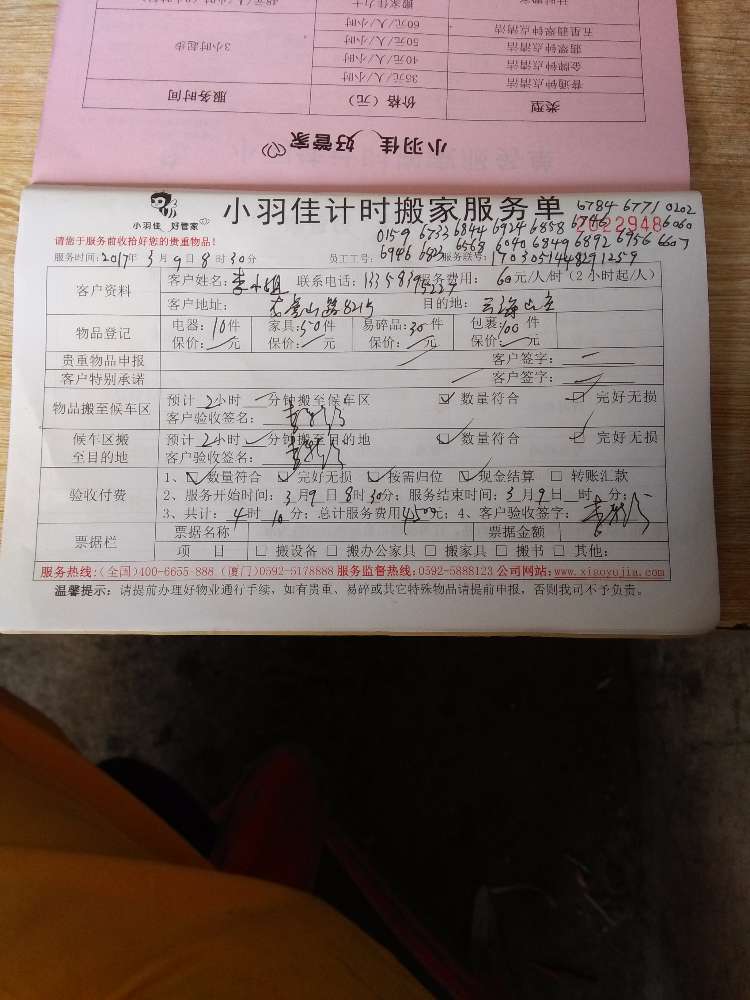 计时搬家
搬家佳力士
五星翡翠钟点清洁
60元/人/小时
翡翠钟点清洁
50元/人/小时
3小时起步
金牌钟点清洁
40元/人/小时
普通钟点清洁
35元/人/小时
类型
价格（元）
服务时间
小羽佳 好管家
小羽佳 好管家
小羽佳计时搬家服务单
2022948
6784 6771 0202
0159 6733 6844 6924 6858 6746 6060
6946 6823 6568 6040 6849 6892 6956 6607
请您于服务前收拾好您的贵重物品！
服务时间：2017年 3月 9日 8时 30分 员工工号： 服务联号：1703051448291259
客户资料
客户姓名：李小姐 联系电话： 服务费用：60元/人/时（2小时起/人）
客户地址： 8215 目的地：
物品登记
电器：10件 家具：50件 易碎品：30件 包裹：100件
保价： 元 保价： 元 保价： 元 保价： 元
贵重物品申报 客户签字：
客户特别承诺 客户签字：
物品搬至候车区
预计 2小时 分钟搬至候车区 数量符合 完好无损
客户验收签名：
候车区搬至目的地
预计 2小时 分钟搬至目的地 数量符合 完好无损
客户验收签名：
验收付费
1、数量符合 完好无损 按需归位 现金结算 转账汇款
2、服务开始时间：3月9日8时30分；服务结束时间：3月9日 时 分；
3、共计：4时10分；总计服务费用4500元；4、客户验收签字：
票据栏
票据名称 票据金额
项 目 搬设备 搬办公家具 搬家具 搬书 其他：
服务热线：（全国）400-6655-888（厦门）0592-5178888 服务监督热线：0592-5888123 公司网站：www.xiaoyujia.com
温馨提示：请提前办理好物业通行手续，如有贵重、易碎或其它特殊物品请提前申报，否则我司不予负责。